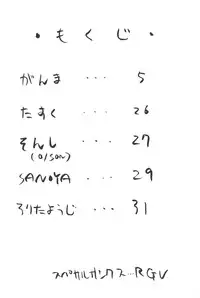 ・もくじ・
がんま ・・・ 5
たすく ・・・ 26
そんし ・・・ 27
(0/500)
SANOYA ・・・ 29
ろりたようじ ・・・ 31
スペサルサンクス…RGV